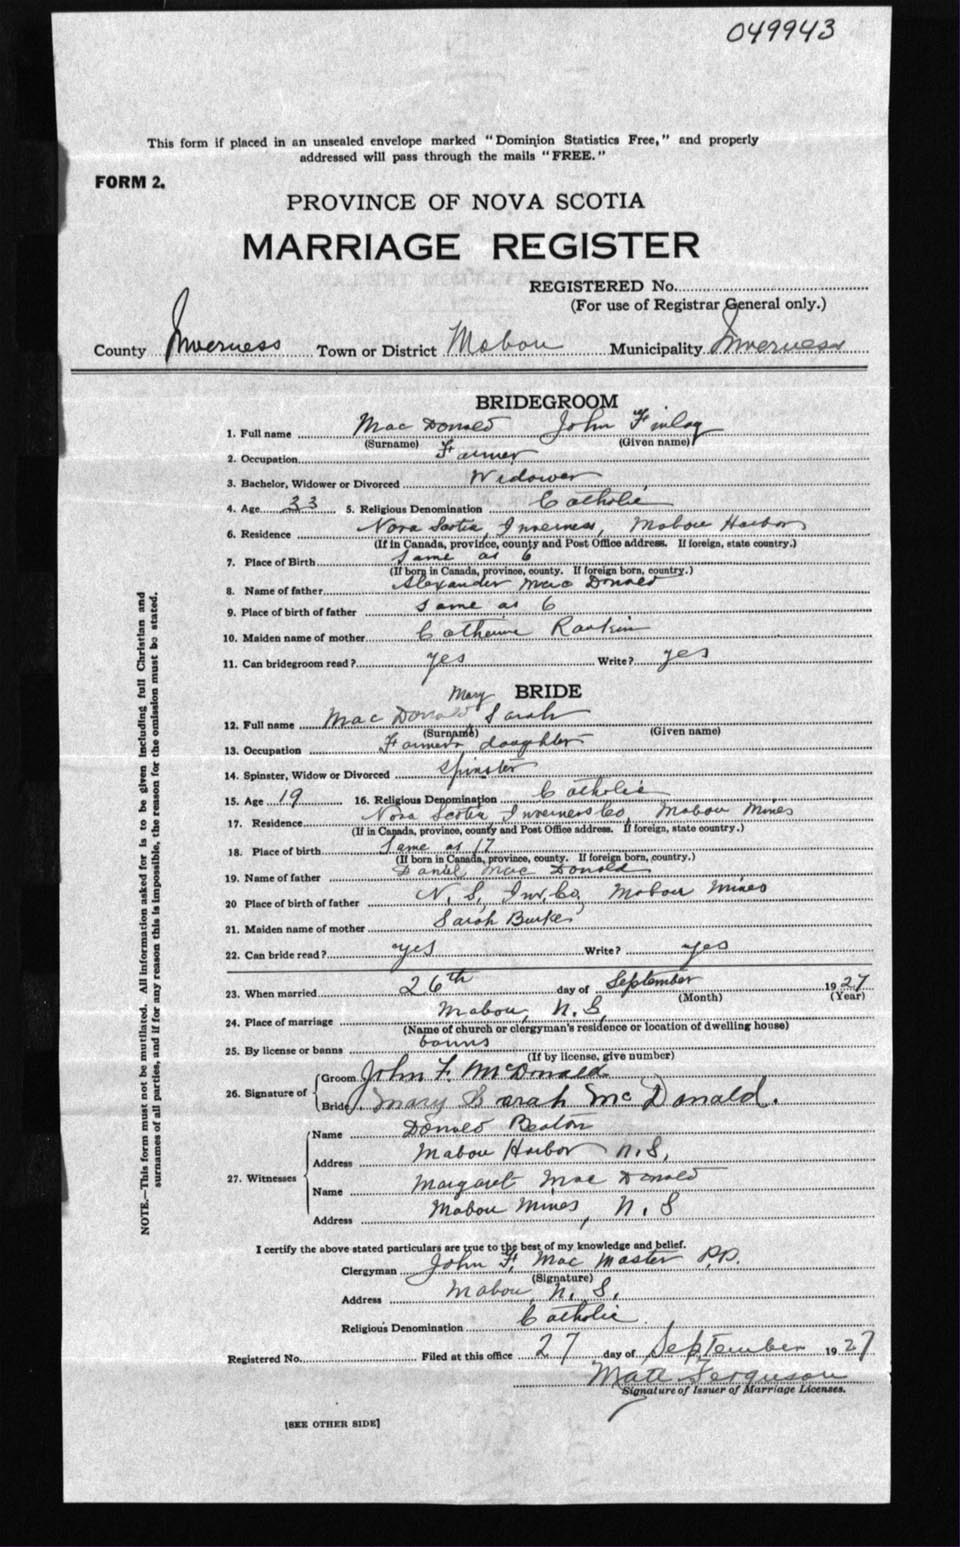 049943
This form if placed in an unsealed envelope marked "Dominion Statistics Free," and properly
addressed will pass through the mails "FREE."
FORM 2.
PROVINCE OF NOVA SCOTIA
MARRIAGE REGISTER
REGISTERED No.
(For use of Registrar General only.)
County Inverness Town or District Mabou Municipality Inverness
BRIDEGROOM
1. Full name Mac Donald John Finlay
(Surname) (Given name)
2. Occupation Farmer
3. Bachelor, Widower or Divorced Widower
4. Age 33 5. Religious Denomination Catholic
6. Residence Nova Scotia, Inverness, Mabou Harbor
(If in Canada, province, county and Post Office address. If foreign, state country.)
7. Place of Birth Same as 6
(If born in Canada, province, county. If foreign born, country.)
8. Name of father Alexander Mac Donald
9. Place of birth of father Same as 6
10. Maiden name of mother Catherine Rankin
11. Can bridegroom read? yes Write? yes
BRIDE
12. Full name Mac Donald Mary Sarah
(Surname) (Given name)
13. Occupation Farmer's daughter
14. Spinster, Widow or Divorced Spinster
15. Age 19 16. Religious Denomination Catholic
17. Residence Nova Scotia Inverness Co, Mabou Mines
(If in Canada, province, county and Post Office address. If foreign, state country.)
18. Place of birth Same as 17
(If born in Canada, province, county. If foreign born, country.)
19. Name of father Daniel Mac Donald
20 Place of birth of father N. S., Inv. Co, Mabou Mines
21. Maiden name of mother Sarah Burke
22. Can bride read? yes Write? yes
23. When married 26th day of September 1927
(Month) (Year)
24. Place of marriage Mabou, N. S,
(Name of church or clergyman's residence or location of dwelling house)
25. By license or banns banns
(If by license, give number)
26. Signature of Groom John F. McDonald
Bride Mary Sarah McDonald.
27. Witnesses Name Donald Beaton
Address Mabou Harbor N.S,
Name Margaret Mac Donald
Address Mabou Mines, N. S
I certify the above stated particulars are true to the best of my knowledge and belief.
Clergyman John F. Mac Master P.P.
(Signature)
Address Mabou, N. S,
Religious Denomination Catholic.
Registered No. Filed at this office 27 day of September 1927
Matt Ferguson
Signature of Issuer of Marriage Licenses.
[SEE OTHER SIDE]
NOTE.—This form must not be mutilated. All information asked for is to be given including full Christian and
surnames of all parties, and if for any reason this is impossible, the reason for the omission must be stated.